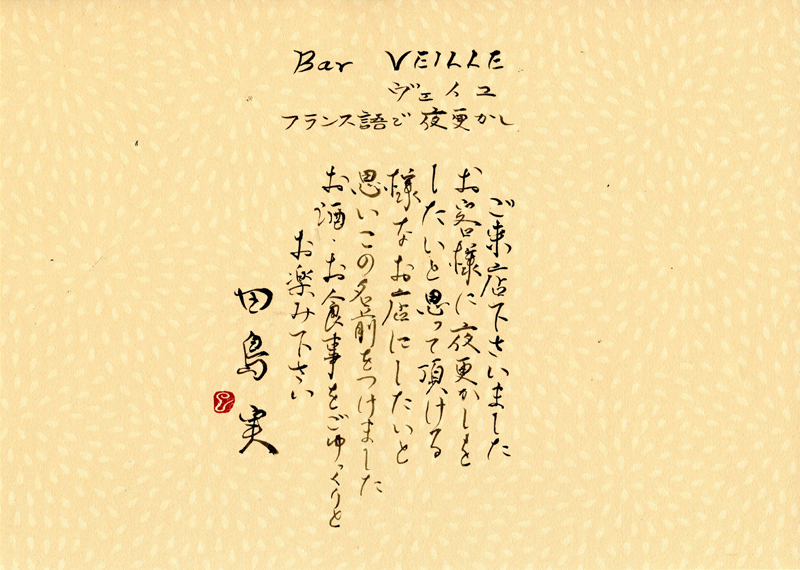 Bar VEILLE
ヴェイユ
フランス語で夜更かし
ご来店下さいました
お客様に夜更かしを
したいと思って頂ける
様なお店にしたいと
思いこの名前をつけました
お酒、お食事をごゆっくりと
お楽み下さい
田島実